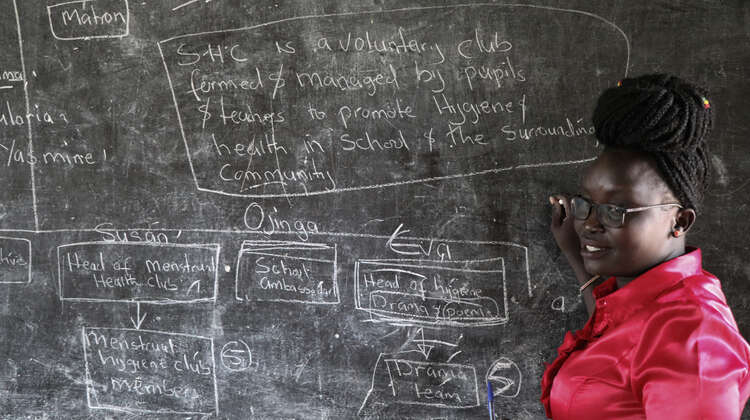 Matron
S.H.C is a voluntary club
formed & managed by pupils
& teachers to promote Hygiene &
health in School & the Surrounding
Community
Yasmine
Ojinga
Susan
Eva
Head of menstrual
Health club
School
ambassador
Head of hygiene
Drama & poems
menstrual
hygiene club
members
5
Drama
team
5